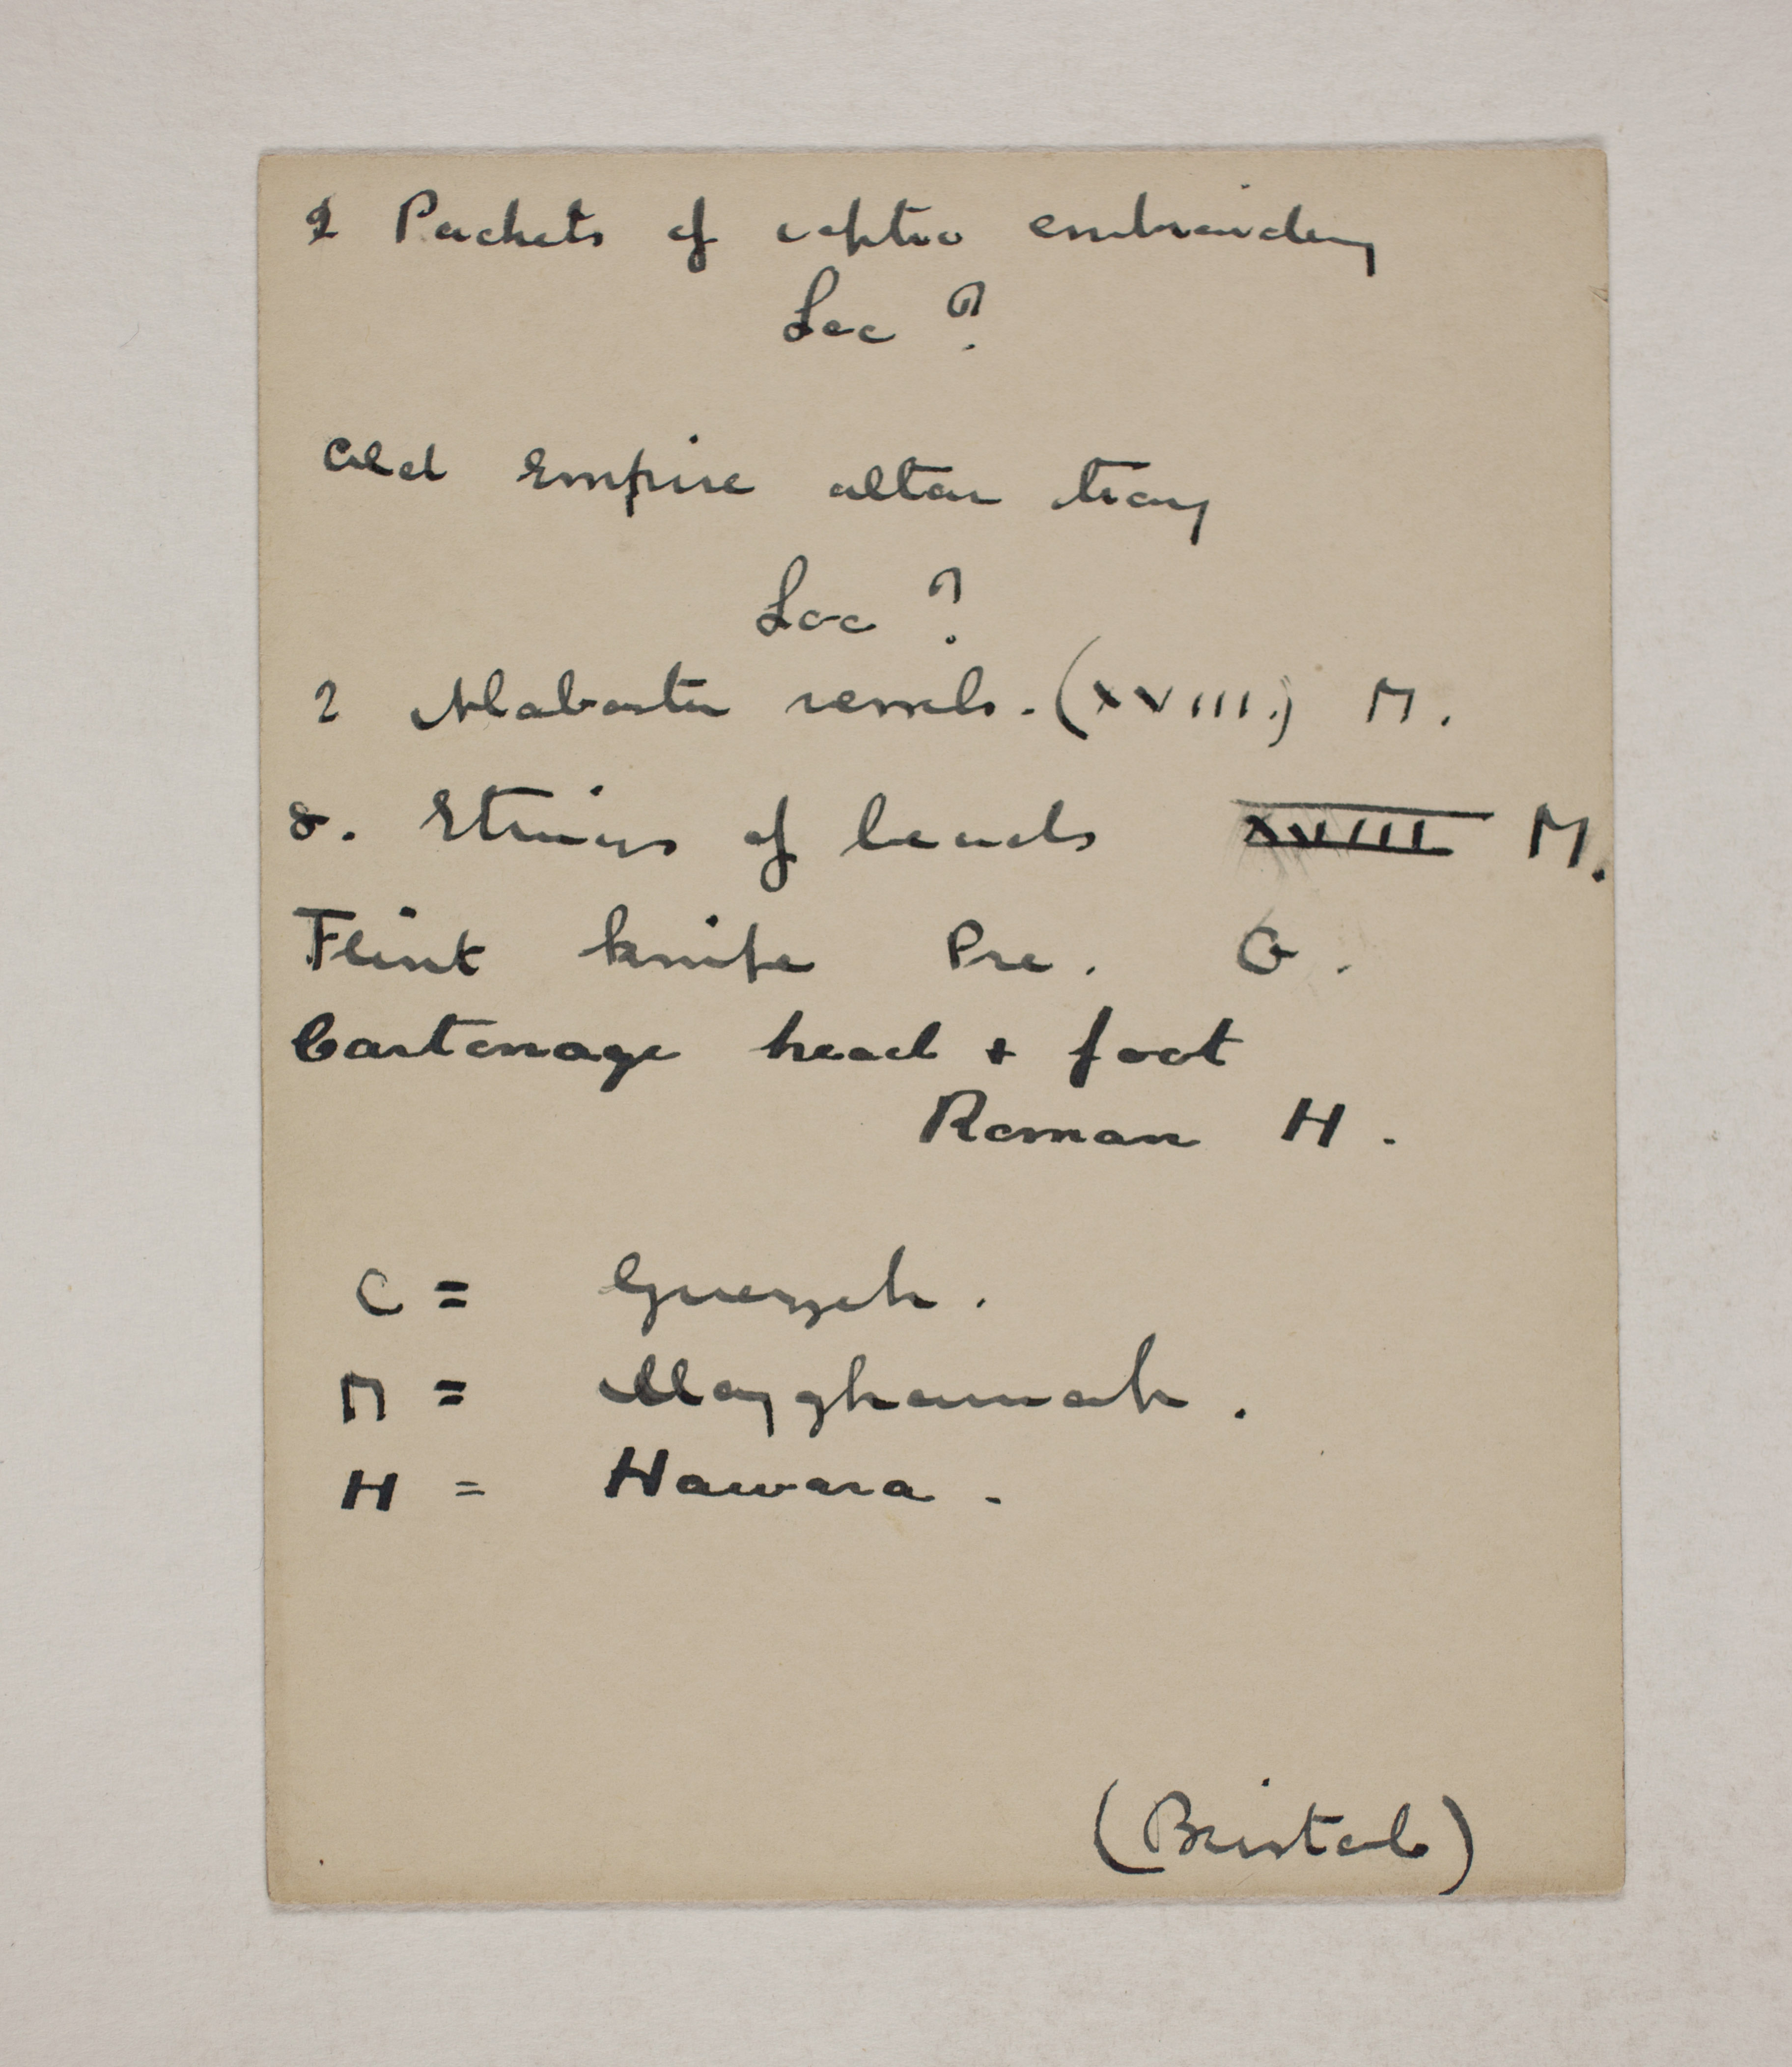 2 Packets of coptic embroidery
Loc ?
Old Empire altar tray
Loc ?
2 Alabaster vessels. (XVIII.) M.
8. Strings of beads XVIII M.
Flint knife Pre. G.
Cartonage head + foot
Roman H.
G = Guerzeh.
M = Mayghamah.
H = Hawara.
(Bristol)